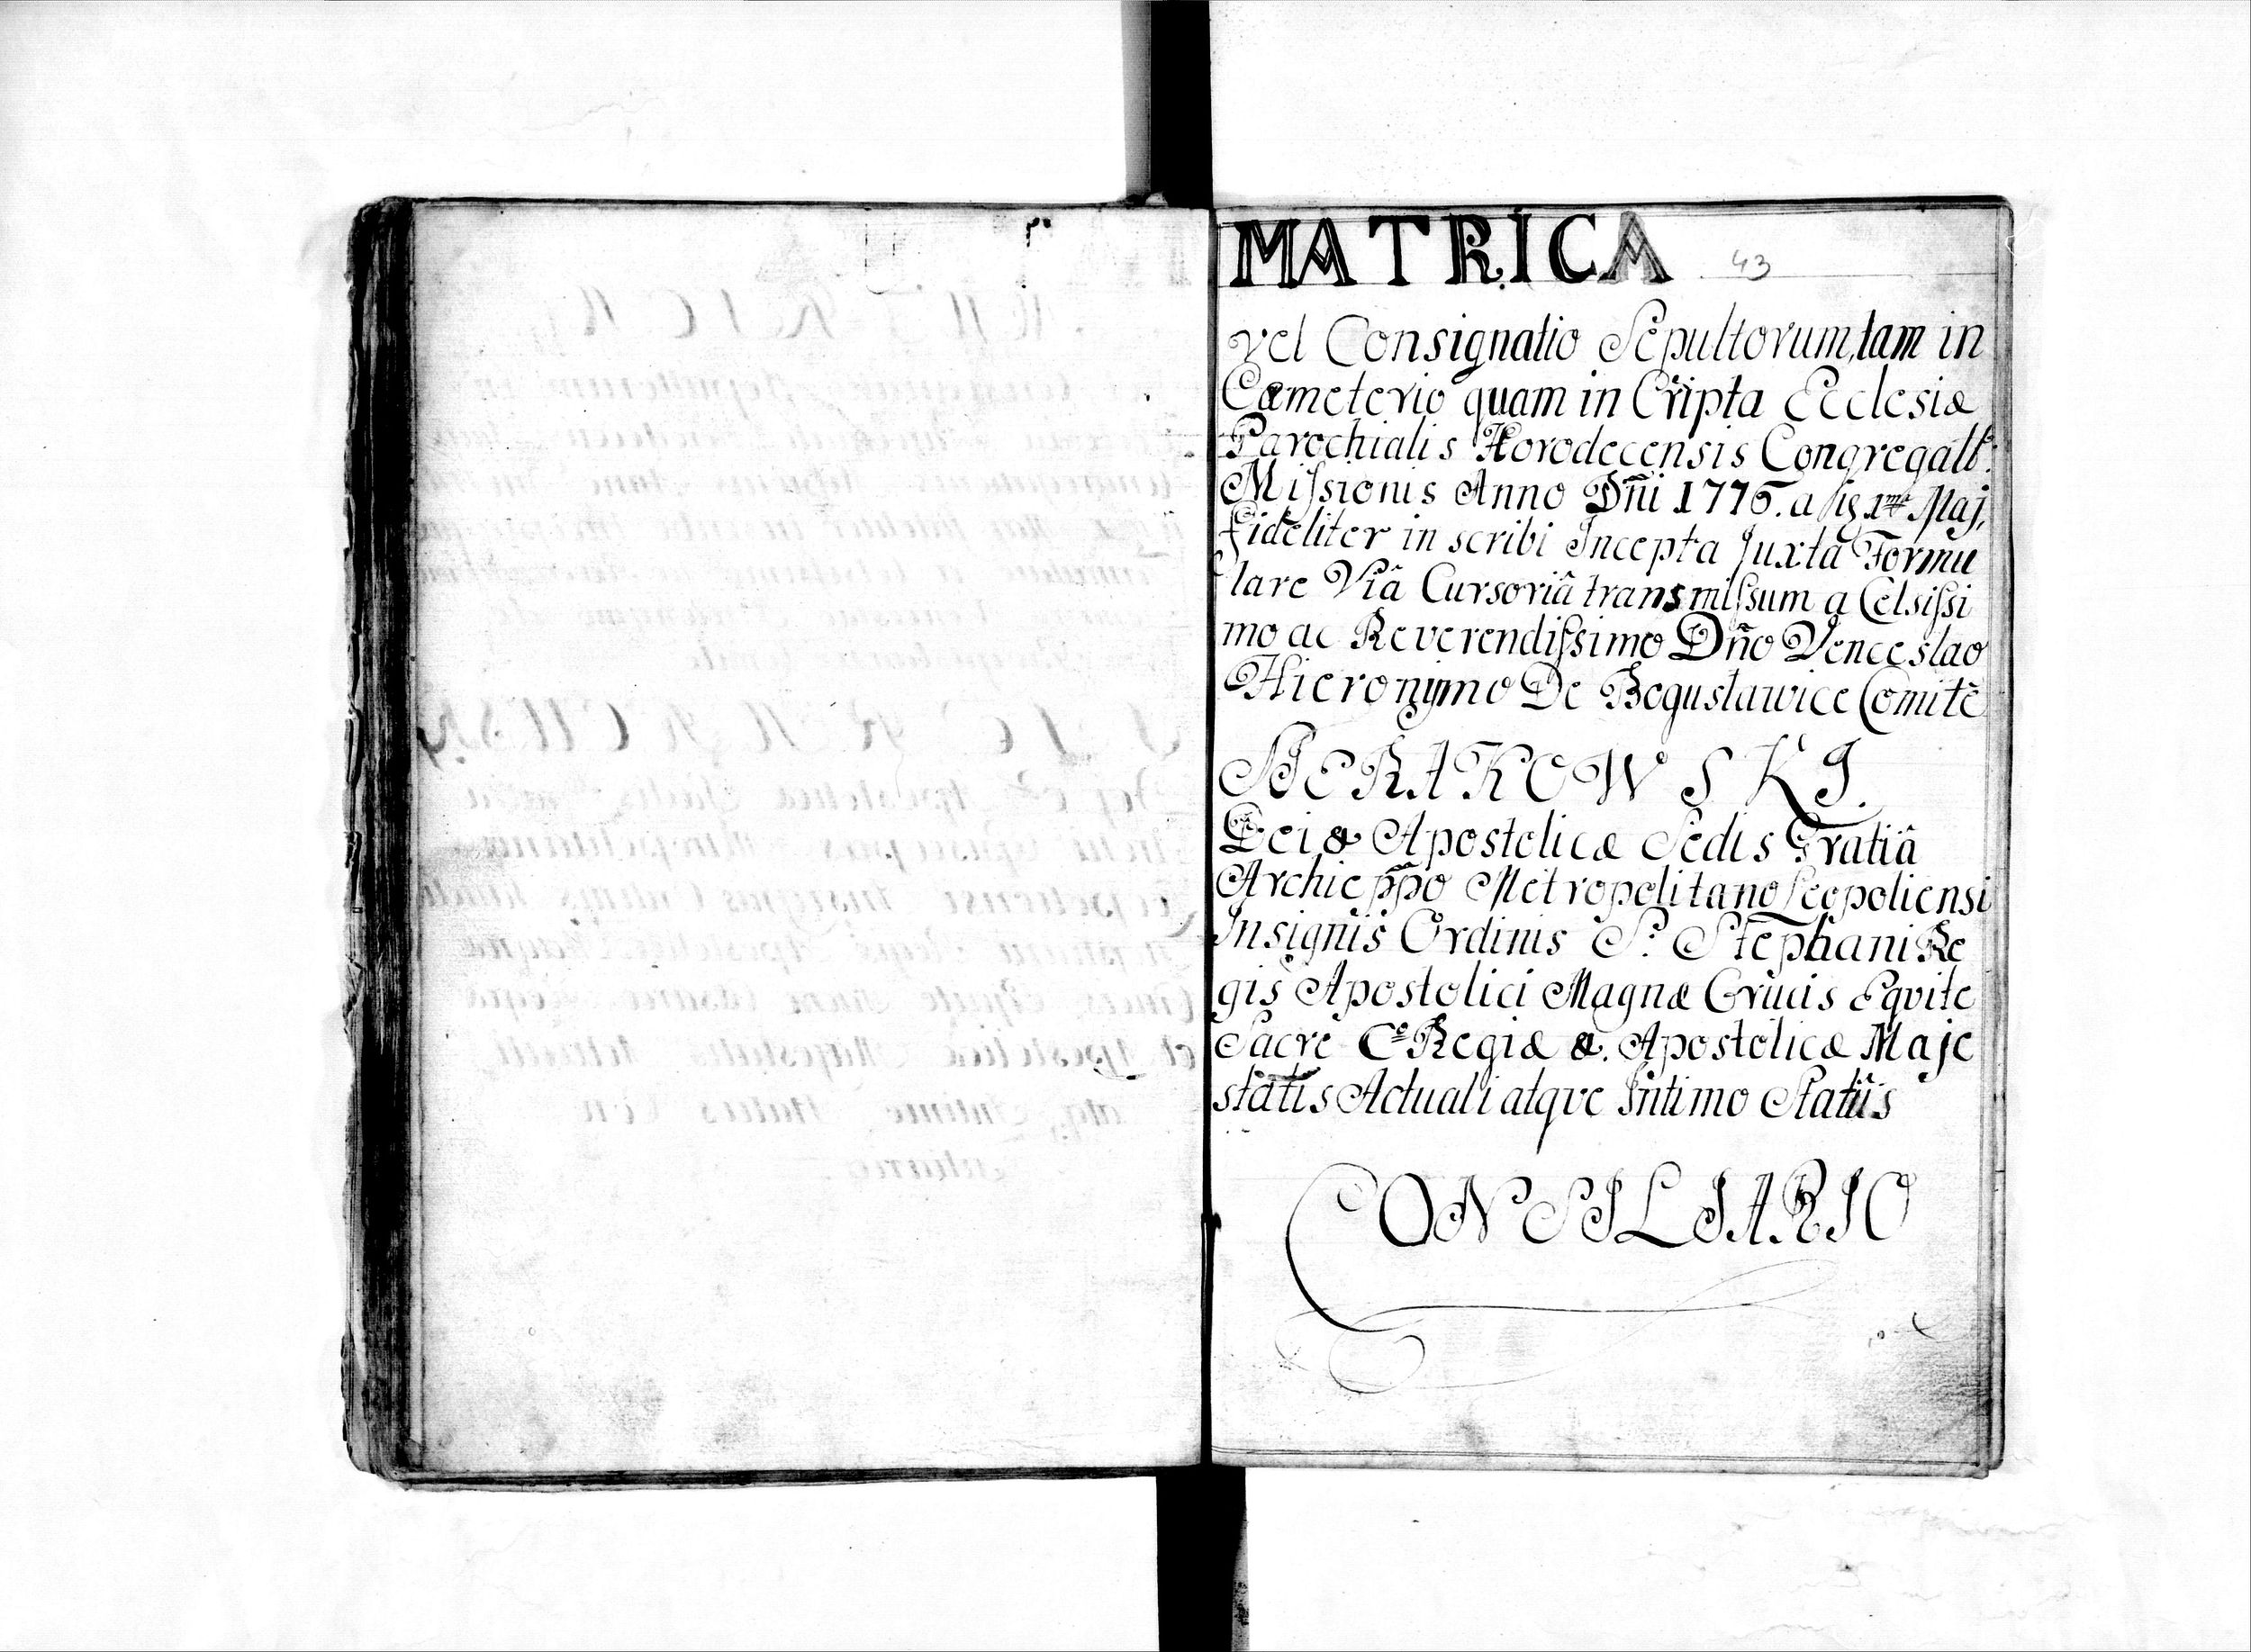 MATRICA
43
vel Consignatio Sepultorum, tam in
Cæmeterio quam in Cripta Ecclesiæ
Parochialis Horodecensis Congregatt:
Missionis Anno Dñi 1776. a 1mâ Maj,
fideliter in scribi Incepta Juxta Formu
lare Viâ Cursoriâ transmissum a Celsissi
mo ac Reverendissimo Dño Venceslao
Hieronymo De Bogusławice Comite
SIERAKOWSKI.
Dei & Apostolicæ Sedis Gratiâ
Archieppo Metropolitano Leopoliensi
Insignis Ordinis S: Stephani Re
gis Apostolici Magnæ Crucis Equite
Sacre Cæ Regiæ &. Apostolicæ Maje
statis Actuali atqve Intimo Statûs
CONSILIARIO